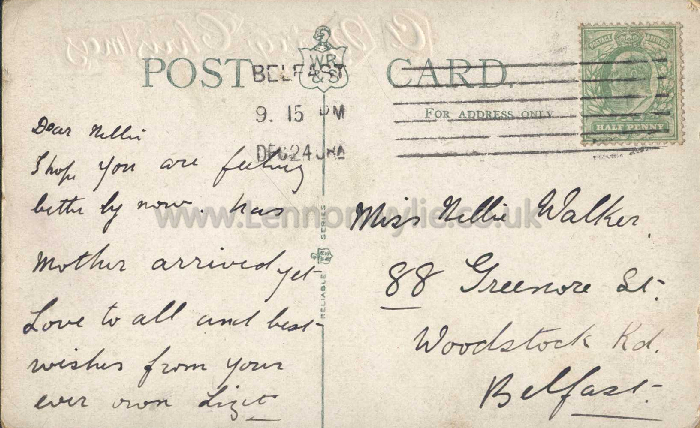 A Merry Christmas
POST CARD.
WR
&S
BELFAST
9. 15 PM
DEC 24
FOR ADDRESS ONLY
HALF PENNY
RELIABLE SERIES
www.Lennonwylie.co.uk
Dear Nellie
I hope you are feeling
better by now. has
Mother arrived yet
Love to all and best
wishes from your
ever own Lizzie
Miss Nellie Walker.
88 Greenore St.
Woodstock Rd.
Belfast.